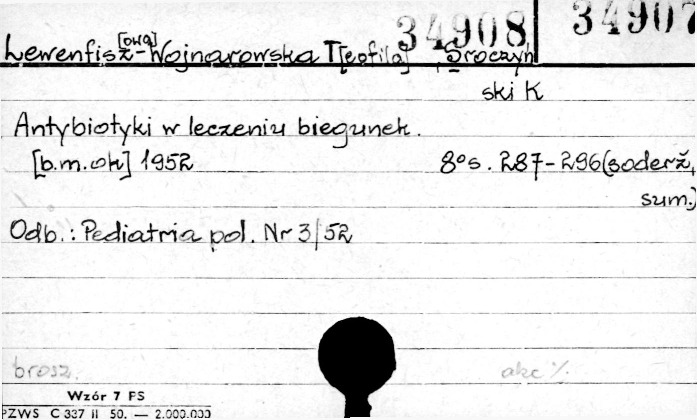 34908 34907
[owa]
Lewenfisz-Wojnarowska T[eofila], Sroczyń
ski K
Antybiotyki w leczeniu biegunek.
[b.m.ok] 1952 8°s. 287-296(soderž,
sum.)
Odb.: Pediatria pol. Nr 3/52
brosz. akc %
Wzór 7 FS
PZWS C 337 II 50. — 2.000.000